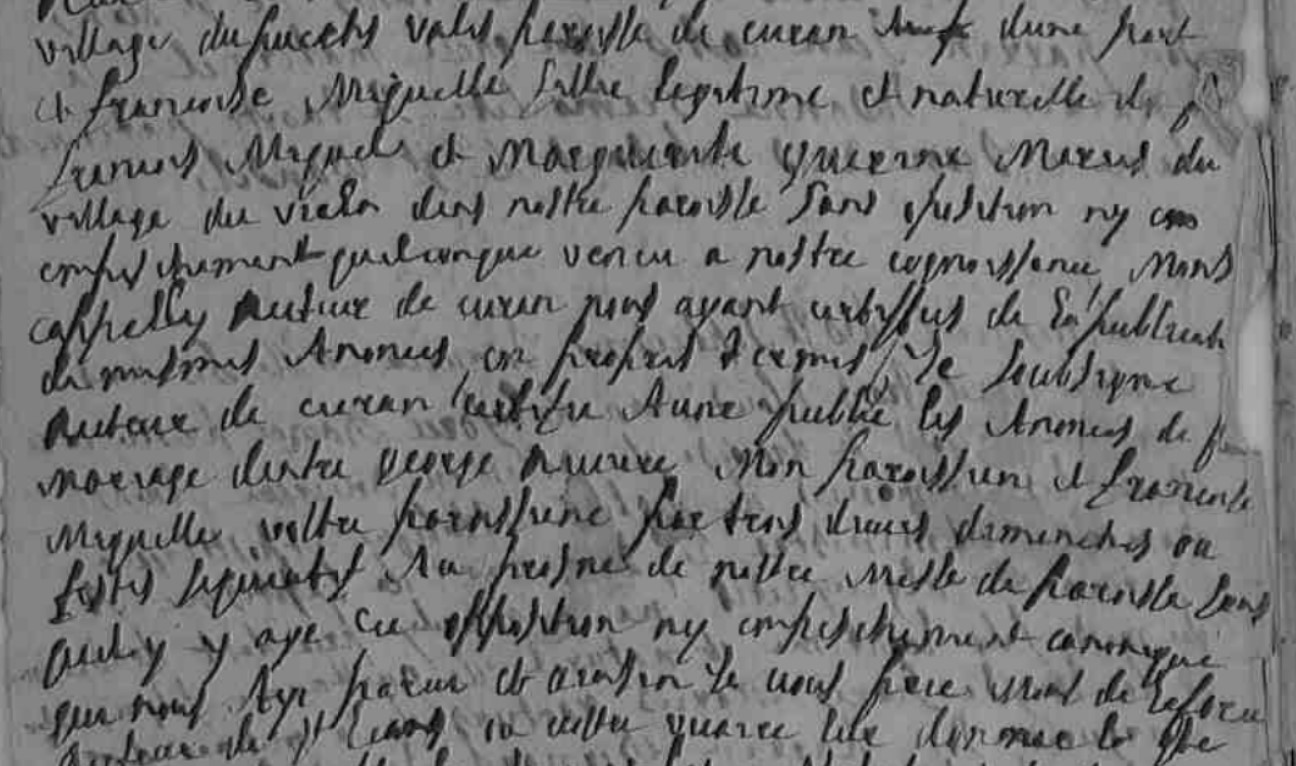 village du puechs valis paroisse de curan d'une part
et francoise Miquelle fillie legitime et naturelle de
francois Miquel et Marguerite Maries du
village du viala dans nostre paroisse sans opposition ny
empeschement quelconque veneu a nostre cognoissence Mons
cappelly Recteur de curan nous ayant certiffies de la publicati
de mesmes Anonces en propres termes Je soubsigne
Recteur de curan certifie Avoir publié les Anonces de
mariage dentre george Mon paroissien et francoise
Miquelle vostre paroissiene par trois divers dimenches ou
festes sequents Au prosne de nostre Messe de paroisse sans
quil y y aye eu opposition ny empeschement canonique
que nous Aye pareu et Je vous prie de
Recteur de St en vostre luy donner la